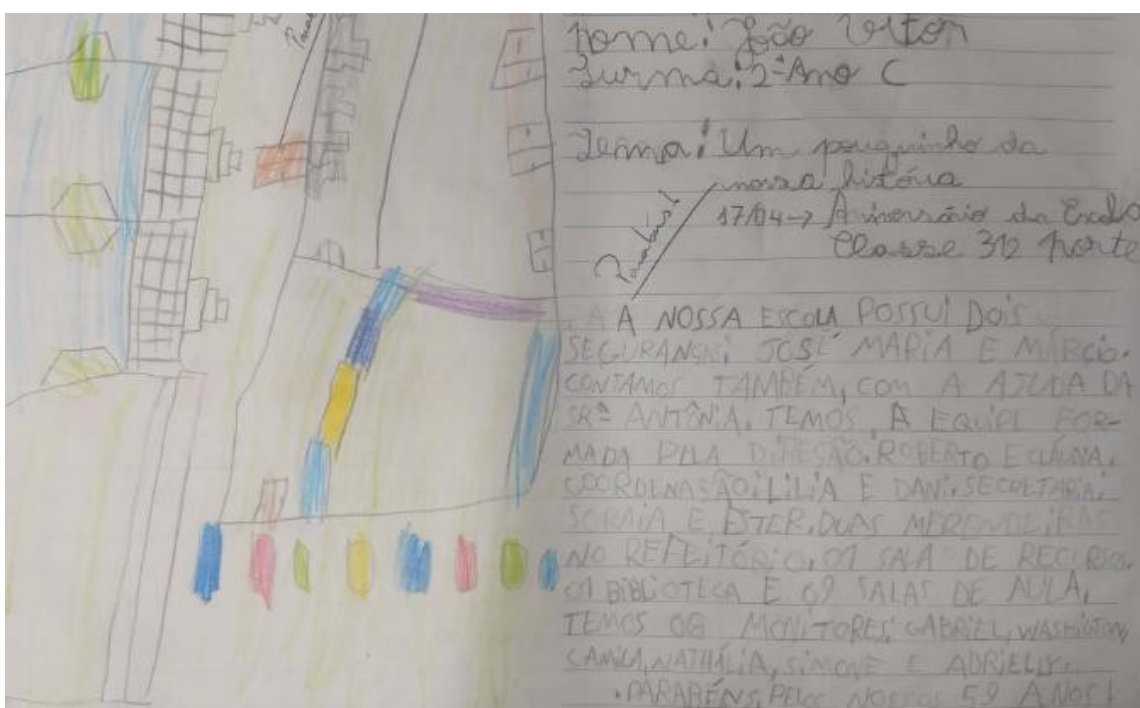 nome: João Vitor
Turma: 2º Ano C
Tema: Um pouquinho da
nossa hitória
17/04→ Aniversário da Escola
Classe 312 norte
Parabéns!
A NOSSA ESCOLA POSSUI DOIS
SEGURANÇAS: JOSÉ MARIA E MÁRCIO.
CONTAMOS TAMBÉM, COM A AJUDA DA
SRª ANTÔNIA. TEMOS A EQUIPE FOR-
MADA PELA DIREÇÃO: ROBERTO E
COORDENASÃO: LILIA E DANI. SECRETARIA:
SORAIA E ESTER. DUAS MERENDEIRAS
NO REFEITÓRIO, 01 SALA DE RECURSOS,
01 BIBLIOTECA E 09 SALAS DE AULA.
TEMOS 06 MONITORES: GABRIEL, WASHINTON,
CAMILA, NATHÁLIA, SIMONE E ADRIELLY.
PARABÉNS, PELOS NOSSOS 59 ANOS!